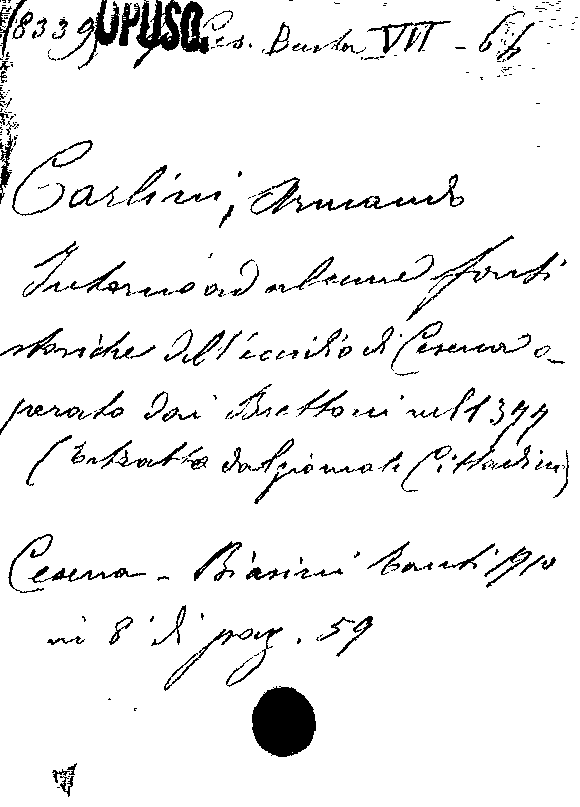 (8339) OPUSC. Ces. Busta VII - 66
Carlini, Armando
Intorno ad alcune fonti
storiche dell'eccidio di Cesena o-
perato dai Brettoni nel 1377
(Estratto dal giornale Cittadino)
Cesena - Biasini Tonti 1910
in 8° di pag. 59